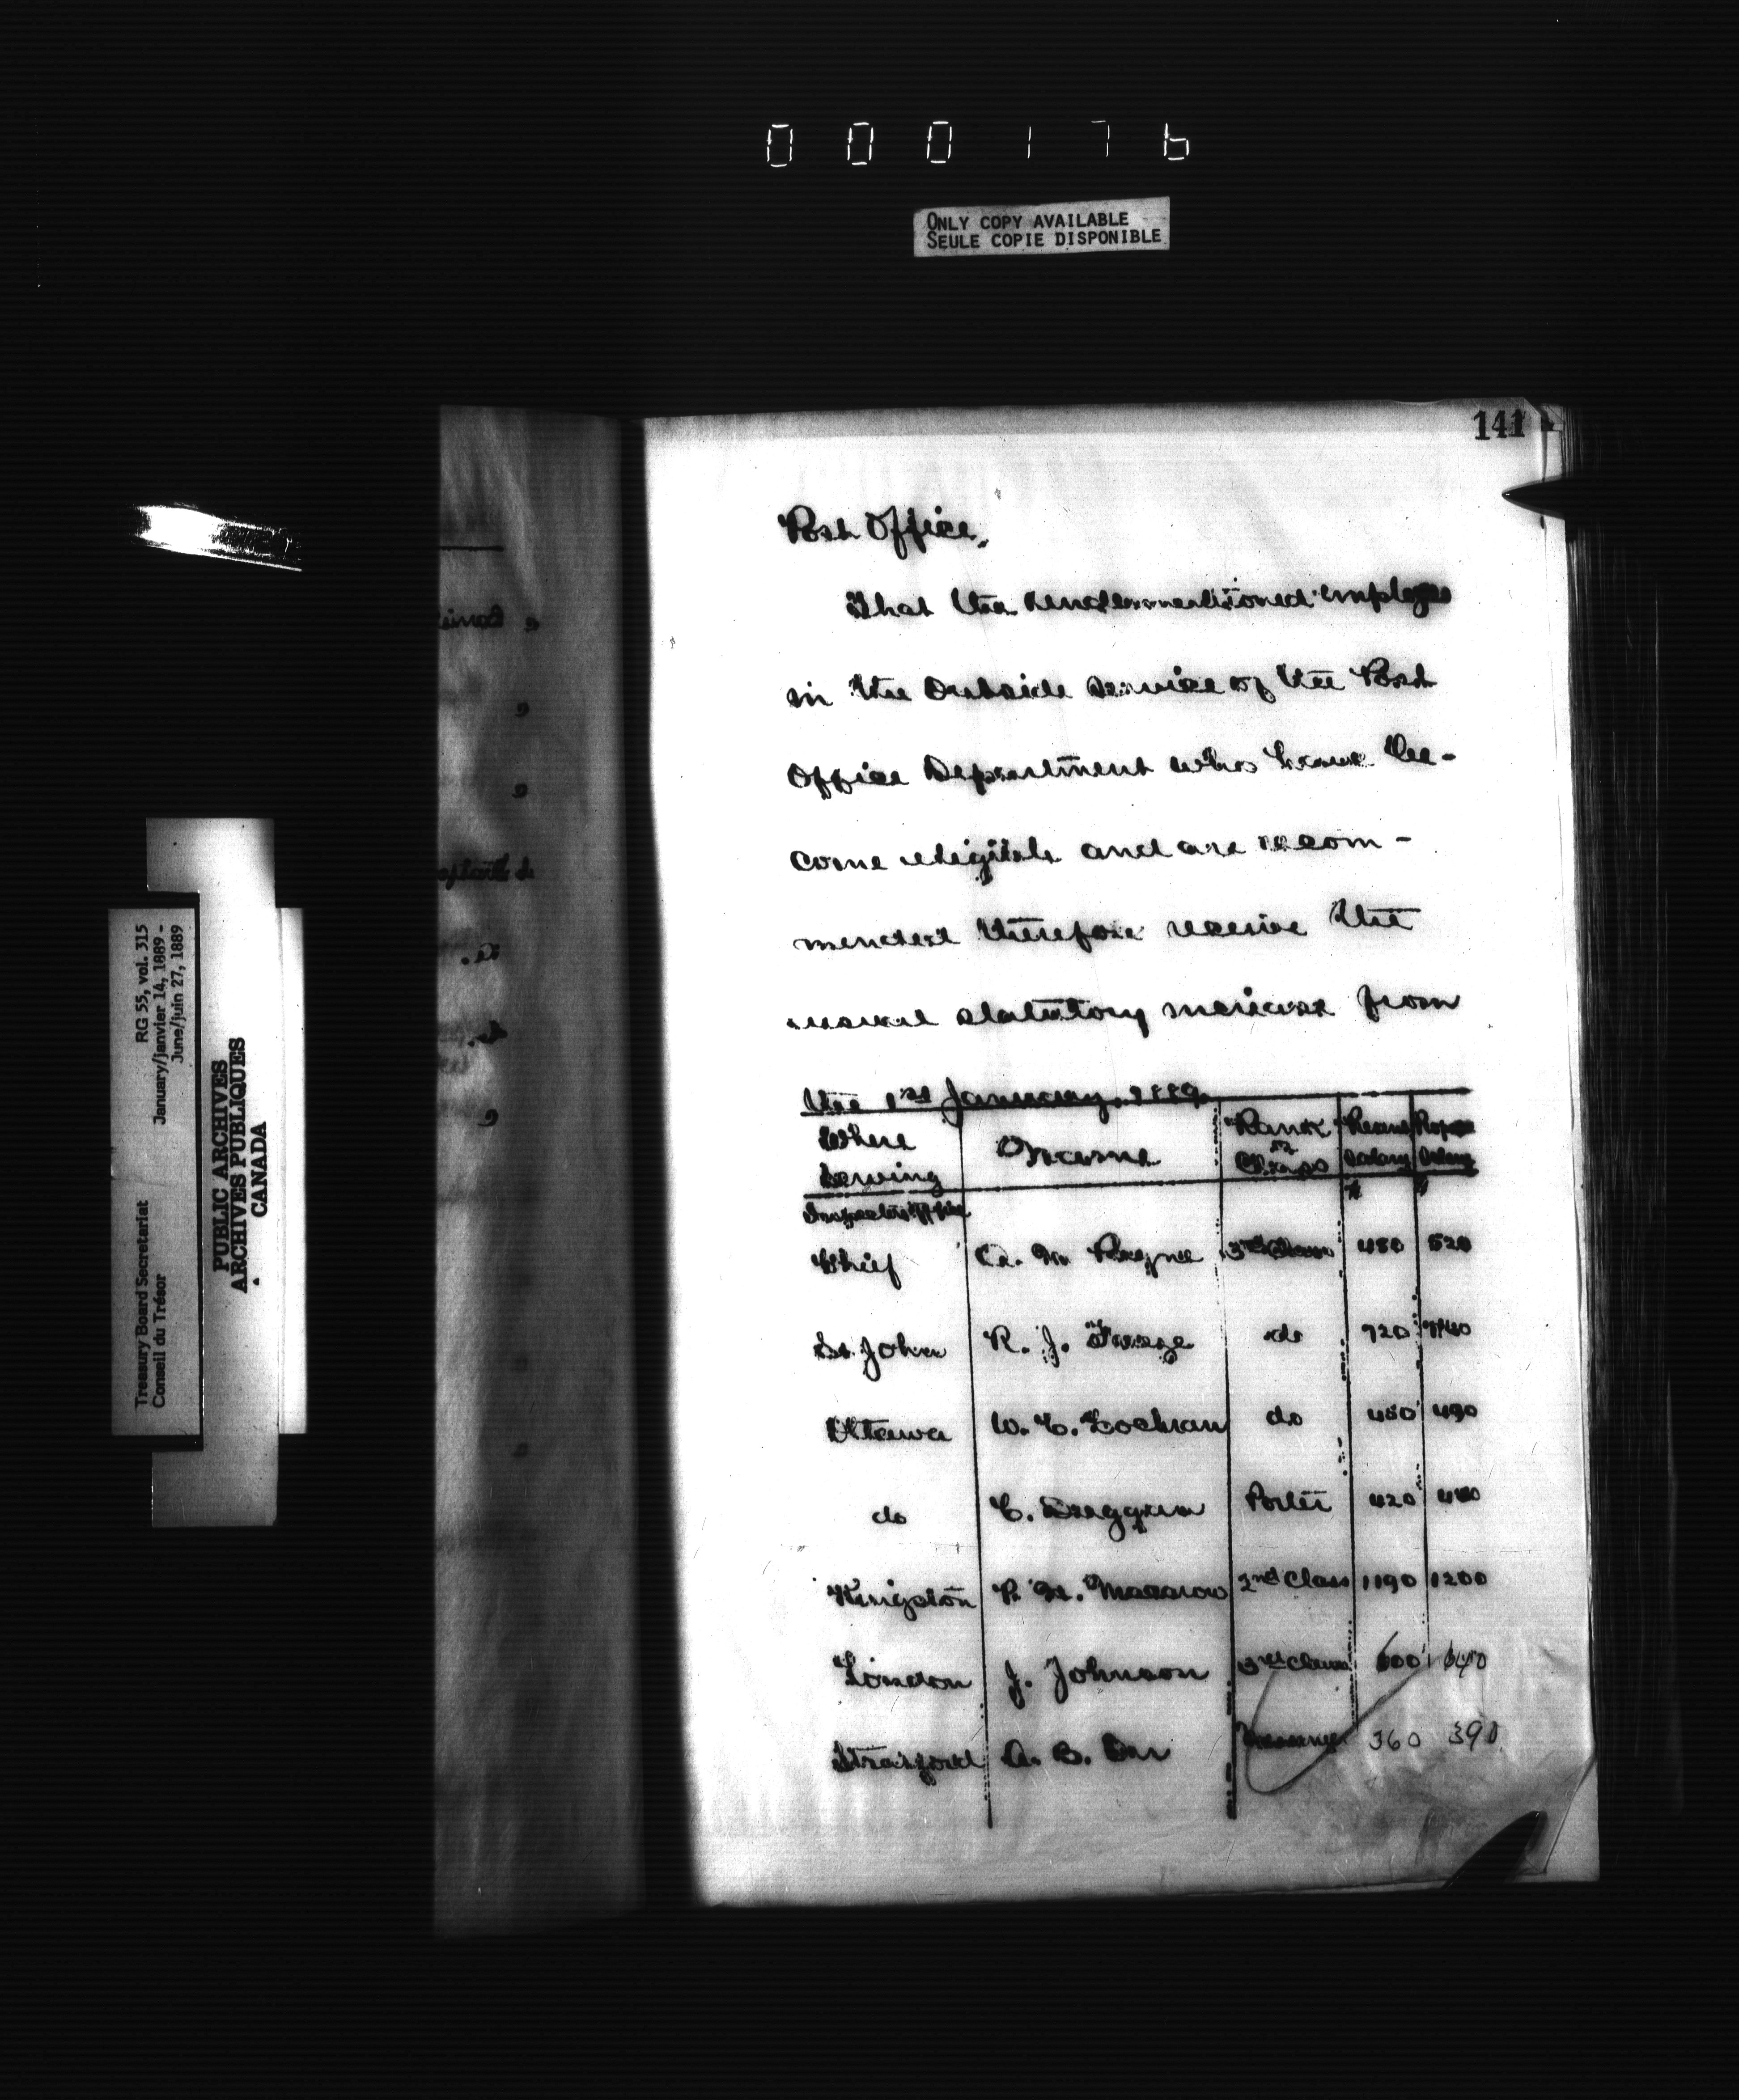 000176
ONLY COPY AVAILABLE
SEULE COPIE DISPONIBLE
141
Post Office.
That the undermentioned employes
in the Outside Service of the Post
Office Department who have be-
come eligible and are recom-
mended therefore receive the
usual statutory increase from
the 1st January, 1889.
Where Serving Name Rank or Class Present Salary Salary
$ $
Inspector's Office
Chief Payne 3rd Class 480 520
St. John R. J. do 920
Ottawa W. C. do 450 490
do C. Porter 420
Kingston 2nd Class 1190 1200
London J. Johnson 3rd Class 600 640
Stratford A. B. Orr Messenger 360 390
RG 55, vol. 315
January/janvier 14, 1889 -
June/juin 27, 1889
Treasury Board Secretariat
Conseil du Trésor
PUBLIC ARCHIVES
ARCHIVES PUBLIQUES
CANADA